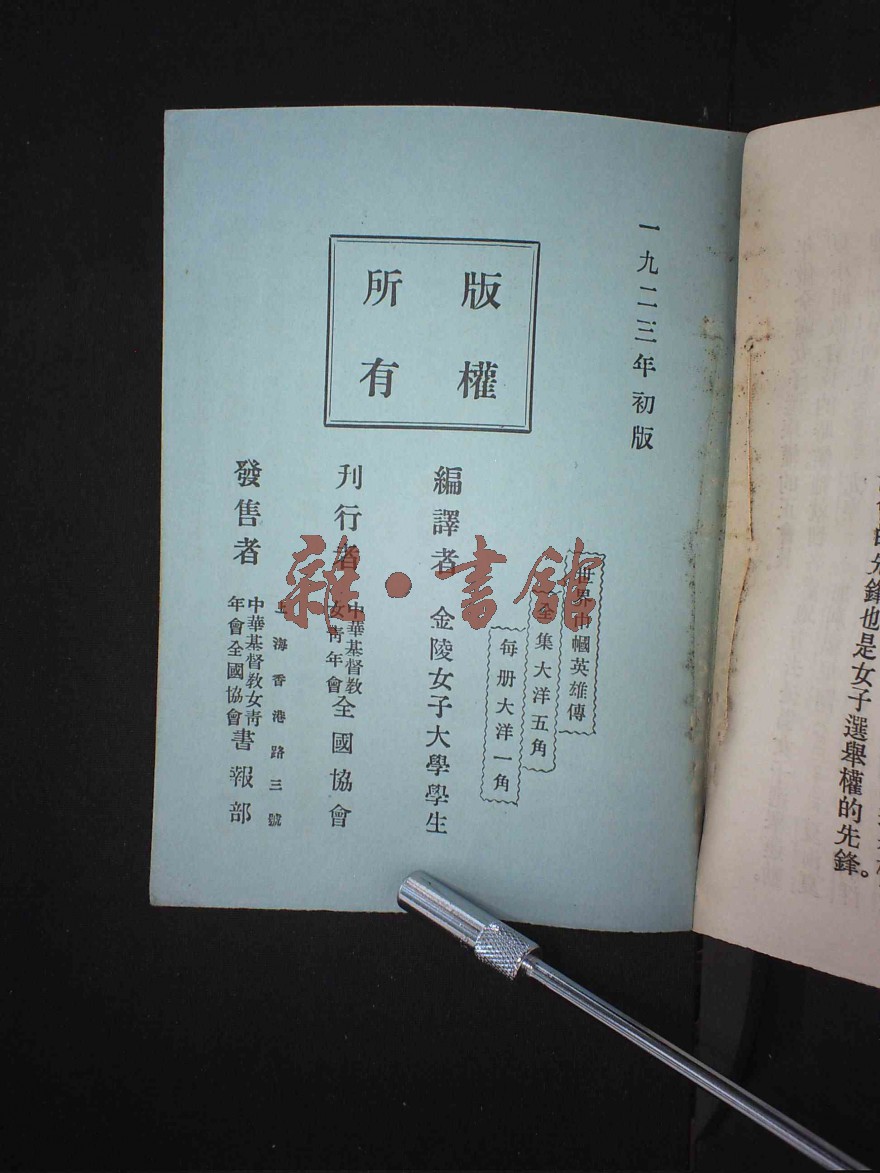 鋒也是女子選舉權的先鋒。
一九二三年初版
版權
所有
世界巾幗英雄傳
全集大洋五角
每册大洋一角
編譯者 金陵女子大學學生
刊行者 中華基督教女青年會全國協會
上海香港路三號
發售者 中華基督教女青年會全國協會書報部
雜·書館